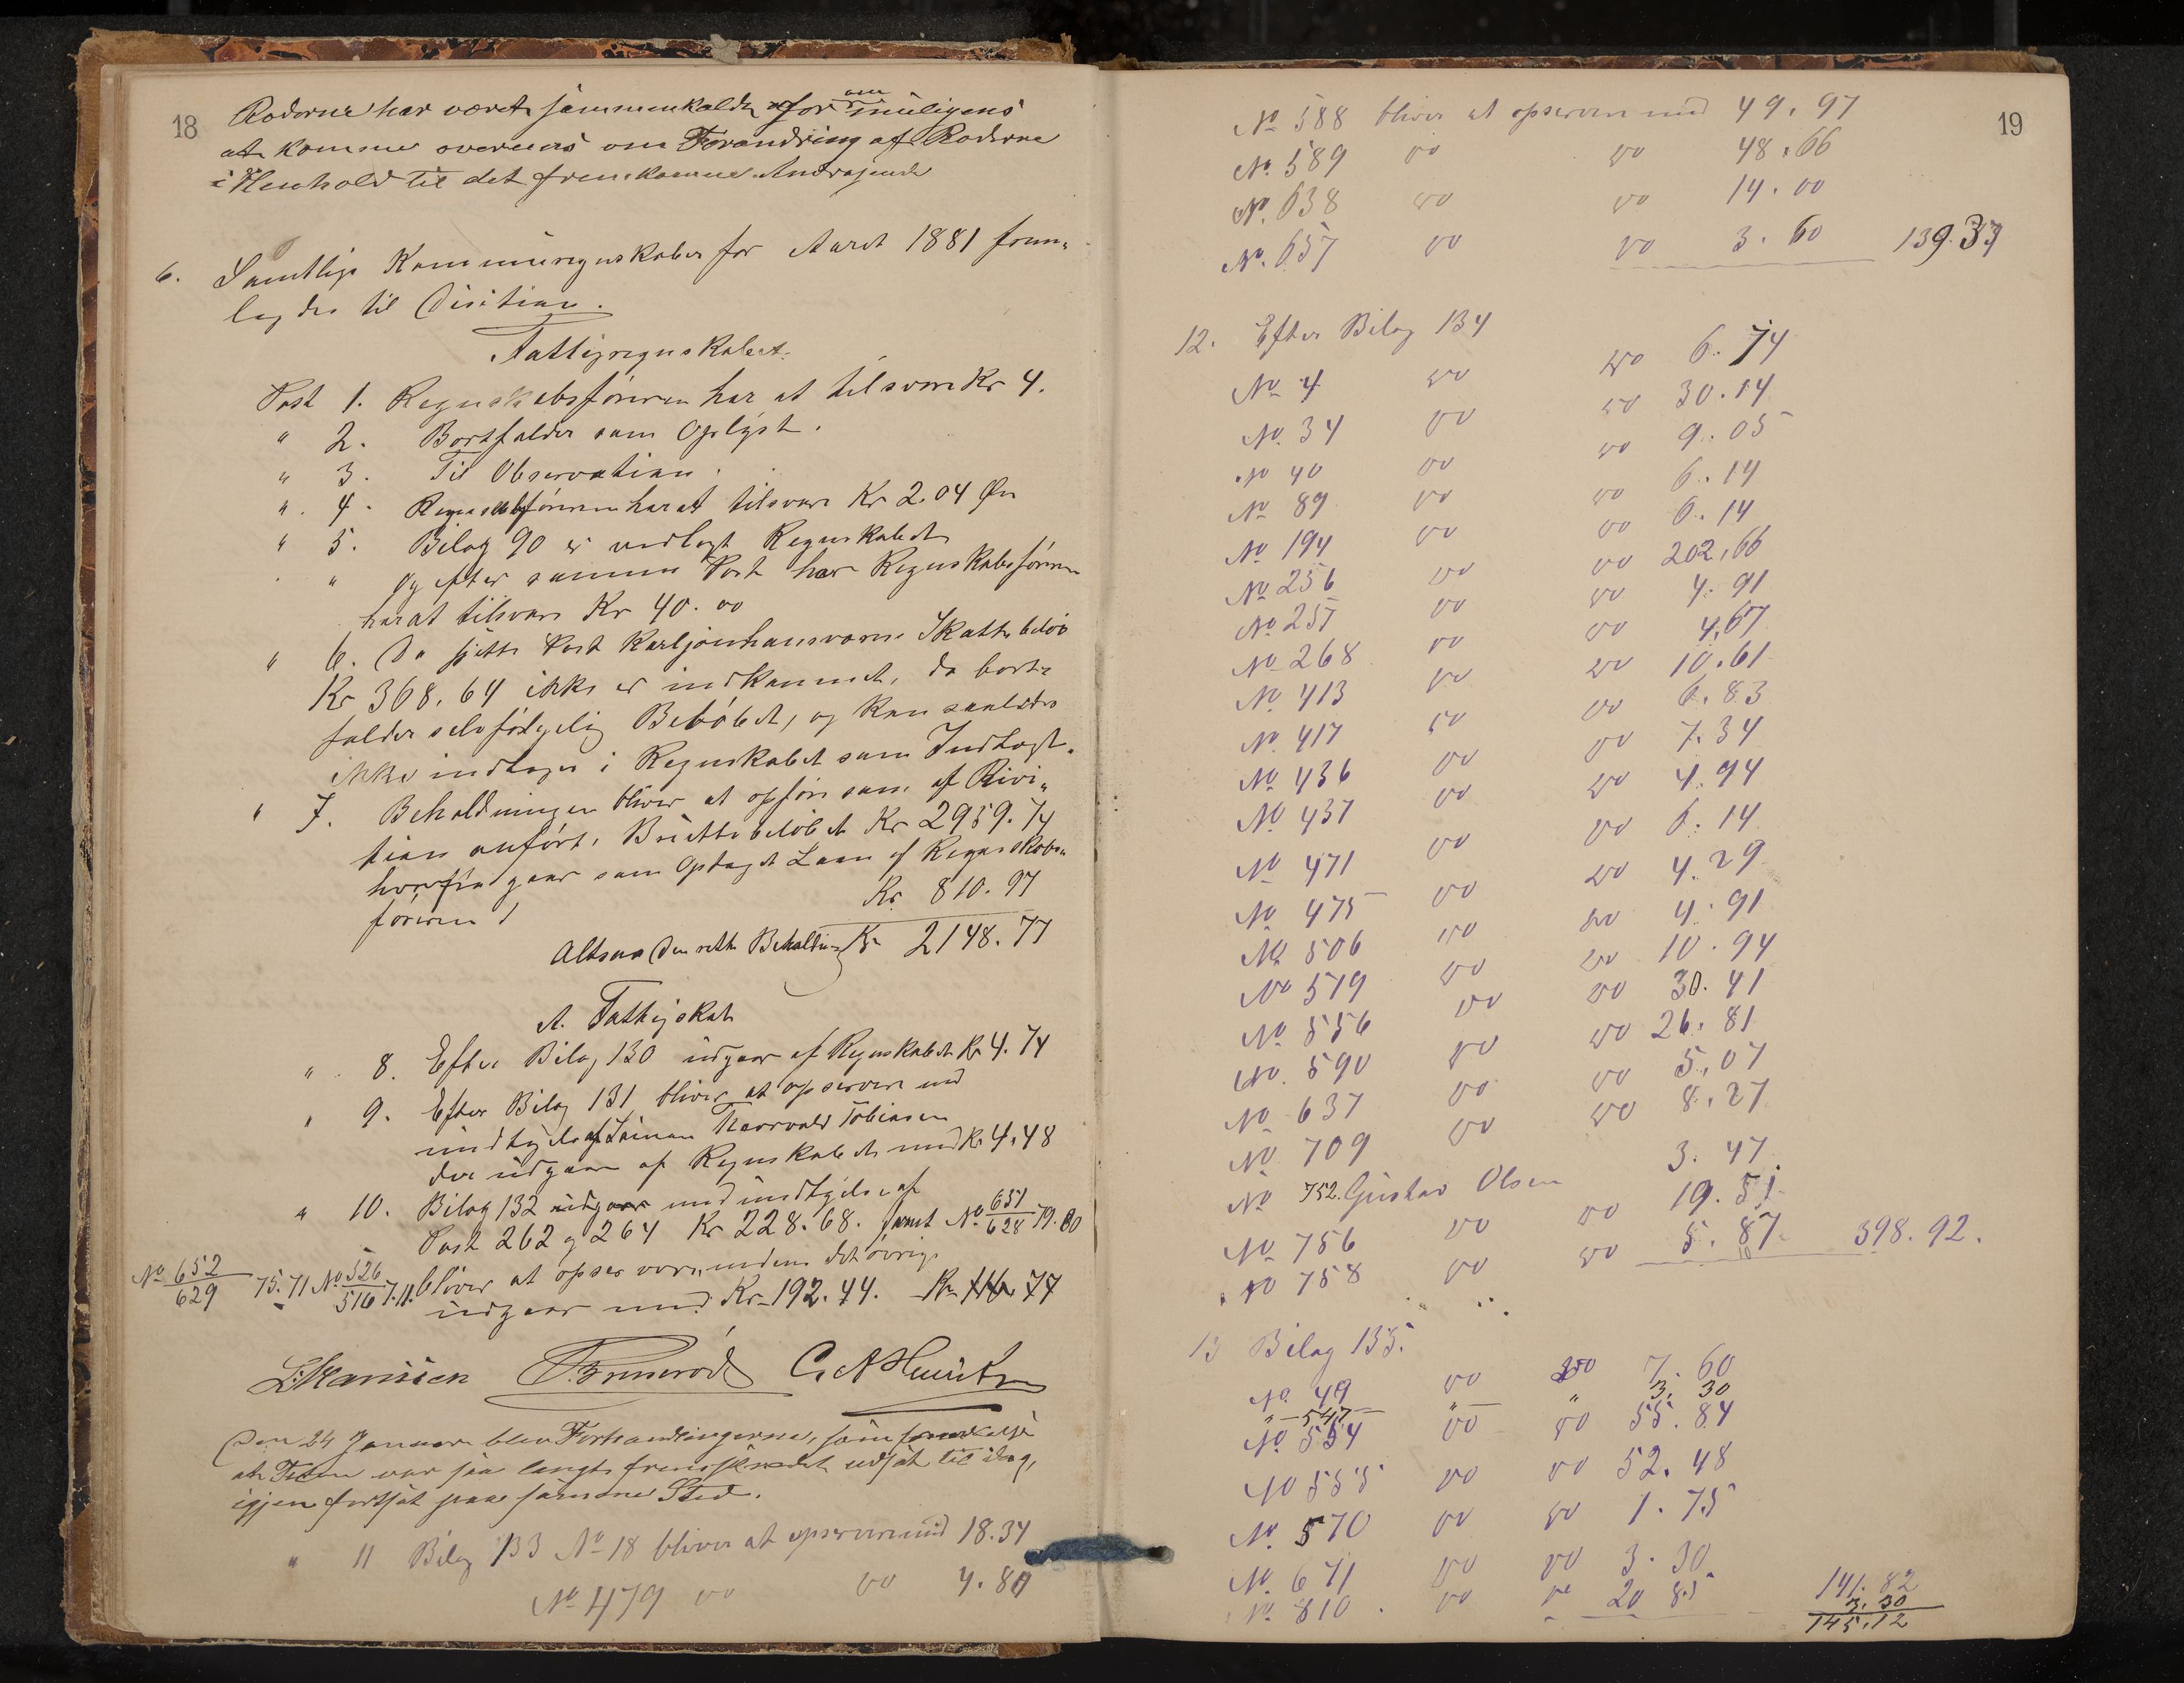 18
Roderne har været sammenkaldte for om muligens
at komme overens om Forandring af Roderne
i Henhold til det fremkomne Andragende
6. Samtlige Kommuneregnskaber for Aaret 1881 frem„
lagdes til Desition.
Fattigregnskabet.
Post 1. Regnskabsføreren har at tilsvare Kr 4.
" 2. Bortfalder som Oplyst.
" 3. Til Observation.
" 4. Regnskabsføreren har at tilsvare Kr 2.04 Øre
" 5. Bilag 90 er vedlagt Regnskabet
" og efter samme Post har Regnskabsføreren
har at tilsvare Kr 40.00
" 6. Da sjette Post Karljohansværns Skattebeløb
Kr 368.64 ikke er indkommet, da bort„
falder selvfølgelig Beløbet, og kan saaledes
ikke indtages i Regnskabet som Indtægt.
" 7. Beholdningen bliver at opføre som af Rivi„
tion anført, Bruttobeløbet Kr 2959.74
hvorfra gaar som Optaget Laan af Regnskabs„
føreren / Kr. 810.97
Altsaa den rette Beholdning Kr 2148.77
A. Fattigskat
" 8. Efter Bilag 130 udgaar af Regnskabet Kr 4.74
" 9. Efter Bilag 131 bliver at opservere med
undtagelse af Thorvald Tobiasen
der udgaar af Regnskabet med Kr 4.48
" 10. Bilag 132 udgaar med undtagelse af
Post 262 og 264 Kr 228.68. samt No 651/628 79.80
No 652/629 75.71 No 526/516 7.11. bliver at opservere, medens det øvrige
udgaar med Kr 192.44. Kr 116.77
L. Hansen
Den 24 Januar blev Forhandlingerne, som formedelst
at Tiden var saa langt fremskredet udsat til idag,
igjen fortsat paa samme Sted.
" 11 Bilag 133 No 18 bliver at opservere med 18.34
No 479 do do 4.80
19
No 588 bliver at opservere med 49.97
No. 589 do do 48.66
No. 638 do do 14.00
No. 657 do do 3.60 139.37
12. Efter Bilag 134
No 4 do do 6.74
No. 34 do do 30.14
No 40 do do 9.05
No 89 do do 6.14
No 194 do do 6.14
No 256 do do 202.66
No 257 do do 4.91
No 268 do do 4.67
No 413 do do 10.61
No 417 do do 6.83
No 436 do do 7.34
No 437 do do 4.94
No 471 do do 6.14
No 475 do do 4.29
No 506 do do 4.91
No 519 do do 10.94
No 556 do do 30.41
No. 590 do do 26.81
No 637 do do 5.07
No 709 do do 8.27
No 752. Gustav Olsen 3.47
No 756 do do 19.51
No 758 do do 5.87 398.92.
13 Bilag 135.
No. 49 do do 7.60
" 547 " " 3.30
No 554 do do 55.84
No 555 do do 52.48
No. 570 do do 1.75
No. 671 do do 3.30
No. 810 do do 20 85 141.82
3.30
145.12